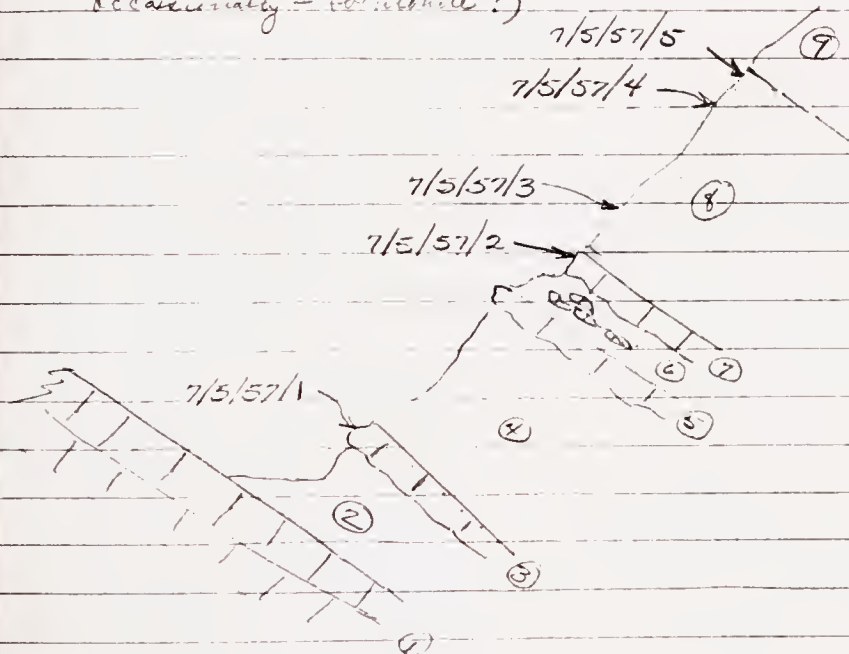 occasionally -
7/5/57/5
9
7/5/57/4
7/5/57/3
8
7/5/57/2
6
7
7/5/57/1
5
4
2
3
1